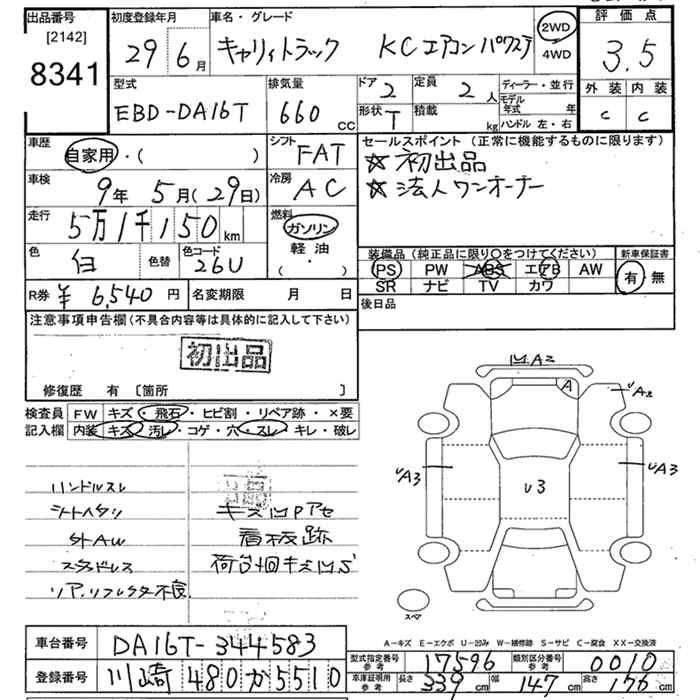 出品番号
[2142]
8341
初度登録年月
29年6月
車名・グレード
キャリイトラック KCエアコンパワステ
2WD
4WD
評価点
3.5
外装 内装
C C
型式
EBD-DA16T
排気量
660 CC
ドア 2
定員 2人
形状 T
積載 kg
ディーラー・並行
モデル年式 年
ハンドル 左・右
車歴
自家用・( )
シフト FAT
車検
9年5月(29日)
冷房 AC
走行
5万1千150 km
燃料
ガソリン
軽油
( ・ )
色 白
色替
色コード 26U
R券 ¥6,540円
名変期限 月 日
セールスポイント(正常に機能するものに限ります)
☆初出品
☆法人ワンオーナー
装備品(純正品に限り○をつけてください)
PS PW ABS エアB AW
SR ナビ TV カワ
新車保証書
有 無
後日品
注意事項申告欄(不具合内容等は具体的に記入して下さい)
初出品
修復歴 有〔箇所 〕
検査員記入欄
FW キズ・飛石・ヒビ割・リペア跡・×要
内装 キズ・汚レ・コゲ・穴・スレ・キレ・破レ
ハンドルスレ
シートヘタリ
外AW
スタドレス
リア.リフレクター不良
キズUPアセ
看板跡
UA2
A
UA2
UA3
U3
UA3
スペア
A-キズ E-エクボ U-凹み W-補修跡 S-サビ C-腐食 XX-交換済
車台番号 DA16T-344583
登録番号 川崎 480 か 5510
型式指定番号 参考 17596
類別区分番号 参考 0010
車庫証明用 参考 長さ 339cm 幅 147cm 高さ 176cm